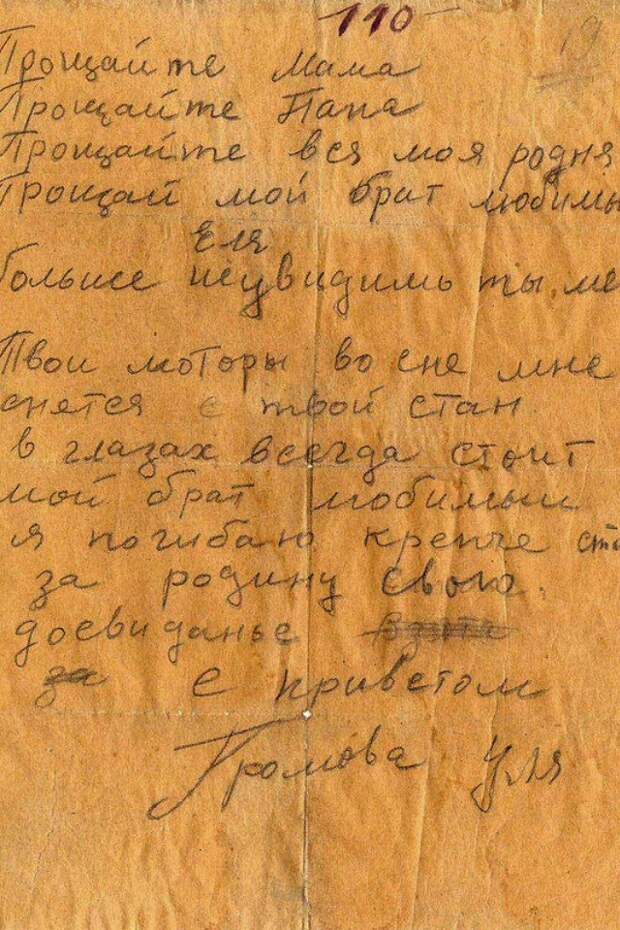 110
19
Прощайте Мама
Прощайте Папа
Прощайте вся моя родня
Прощай мой брат любимы
Еля
больше неувидишь ты ме
Твои моторы во сне мне
снется с твой стан
в глазах всегда стоит
мой брат любимыи
я погибаю крепче ста
за родину свою.
досвиданье
за
С приветом
Громова Уля